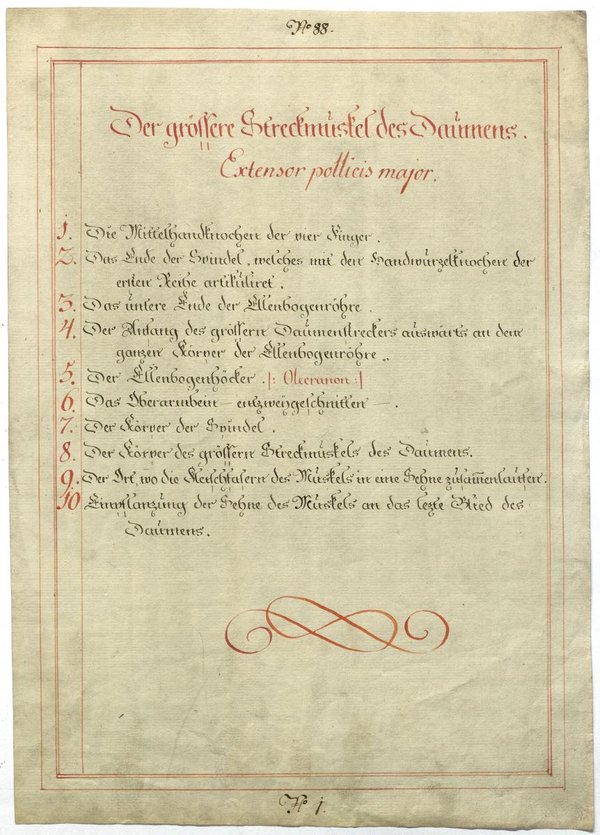 No 88.
Der grössere Streckmuskel des Daumens.
Extensor pollicis major.
1. Die Mittelhandknochen der vier Finger.
2. Das Ende der Spindel, welches mit den Handwurzelknochen der
ersten Reihe artikuliret.
3. Das untere Ende der Ellenbogenröhre.
4. Der Anfang des grössern Daumenstreckers auswärts an dem
ganzen Körper der Ellenbogenröhre.
5. Der Ellenbogenhöcker. |: Olecranon :|
6. Das Oberarmbein — entzweygeschnitten —.
7. Der Körper der Spindel.
8. Der Körper des grössern Streckmuskels des Daumens.
9. Der Ort, wo die Fleischfasern des Muskels in eine Sehne zusammenlaufen.
10 Einpflanzung der Sehne des Muskels an das lezte Glied des
Daumens.
No 1.